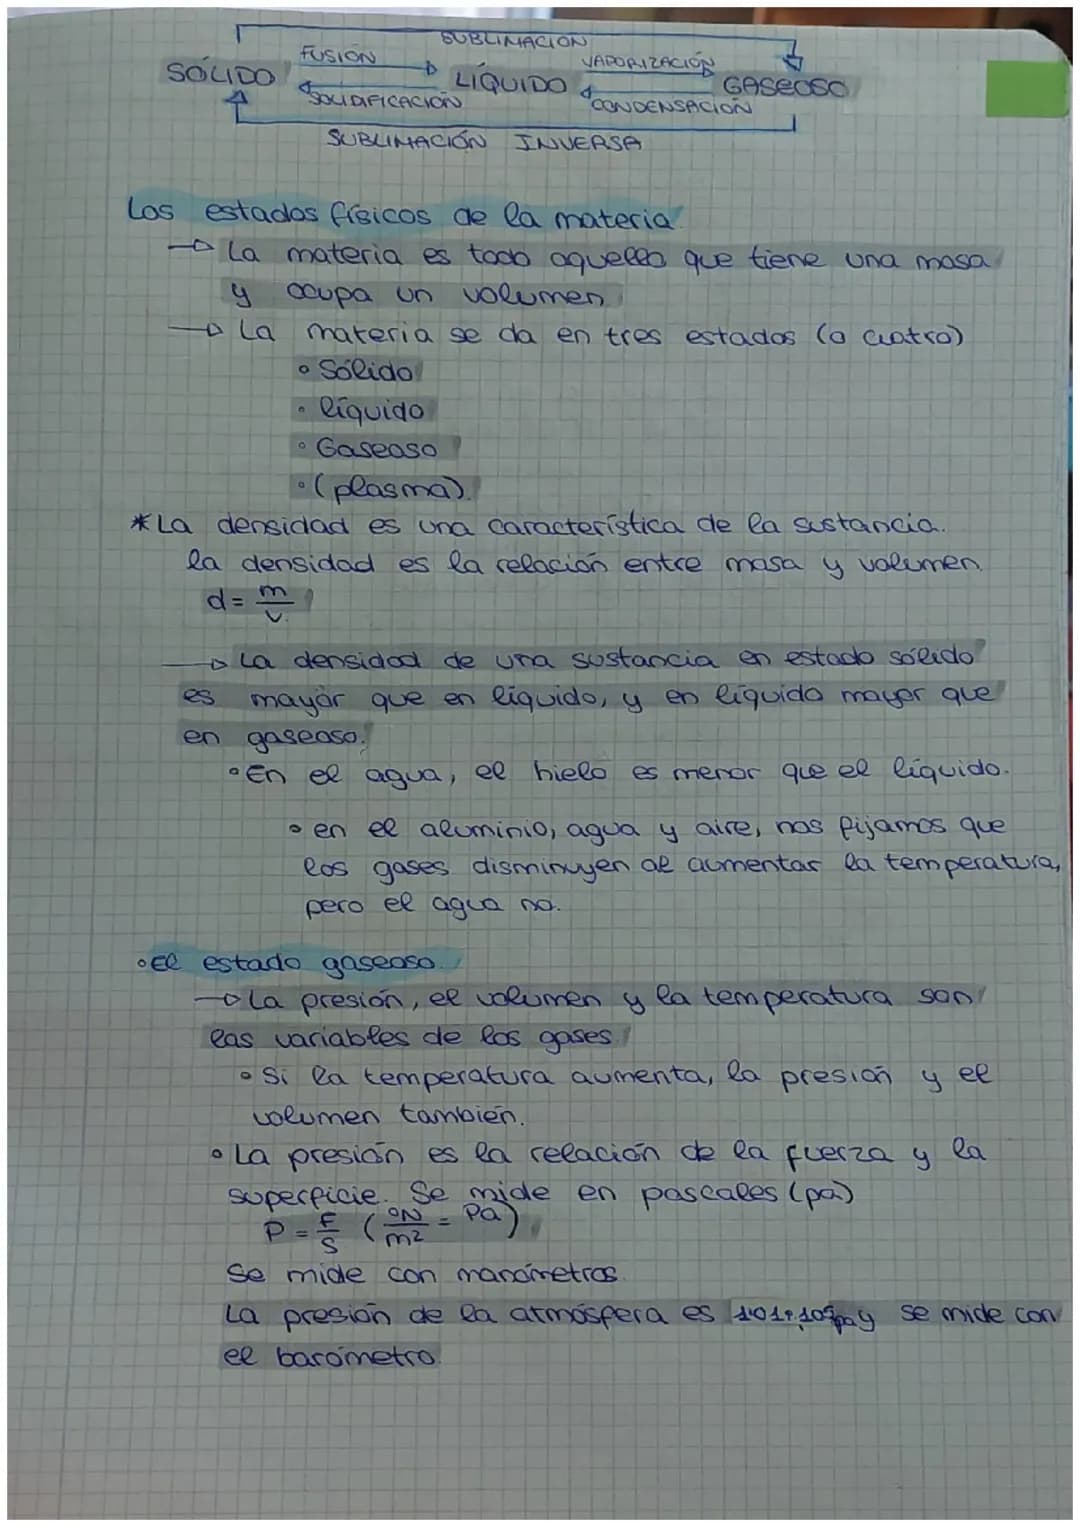 SUBLIMACIÓN
FUSIÓN
VAPORIZACIÓN
SÓLIDO
LÍQUIDO
GASEOSO
SOLIDIFICACIÓN
CONDENSACIÓN
SUBLIMACIÓN INVERSA
Los estados físicos de la materia.
La materia es todo aquello que tiene una masa
y ocupa un volumen
La materia se da en tres estados (o cuatro)
• Sólido
• líquido
• Gaseoso
• (plasma).
*La densidad es una característica de la sustancia.
la densidad es la relación entre masa y volumen.
d = m/v
La densidad de una sustancia en estado sólido
es mayor que en líquido, y en líquido mayor que
en gaseoso.
• En el agua, el hielo es menor que el líquido.
• en el aluminio, agua y aire, nos fijamos que
los gases disminuyen al aumentar la temperatura,
pero el agua no.
• El estado gaseoso.
La presión, el volumen y la temperatura son
las variables de los gases
• Si la temperatura aumenta, la presión y el
volumen también.
• La presión es la relación de la fuerza y la
superficie. Se mide en pascales (pa)
P = F/S (N/m² = Pa)
Se mide con manómetros.
La presión de la atmósfera es pa y se mide con
el barómetro.